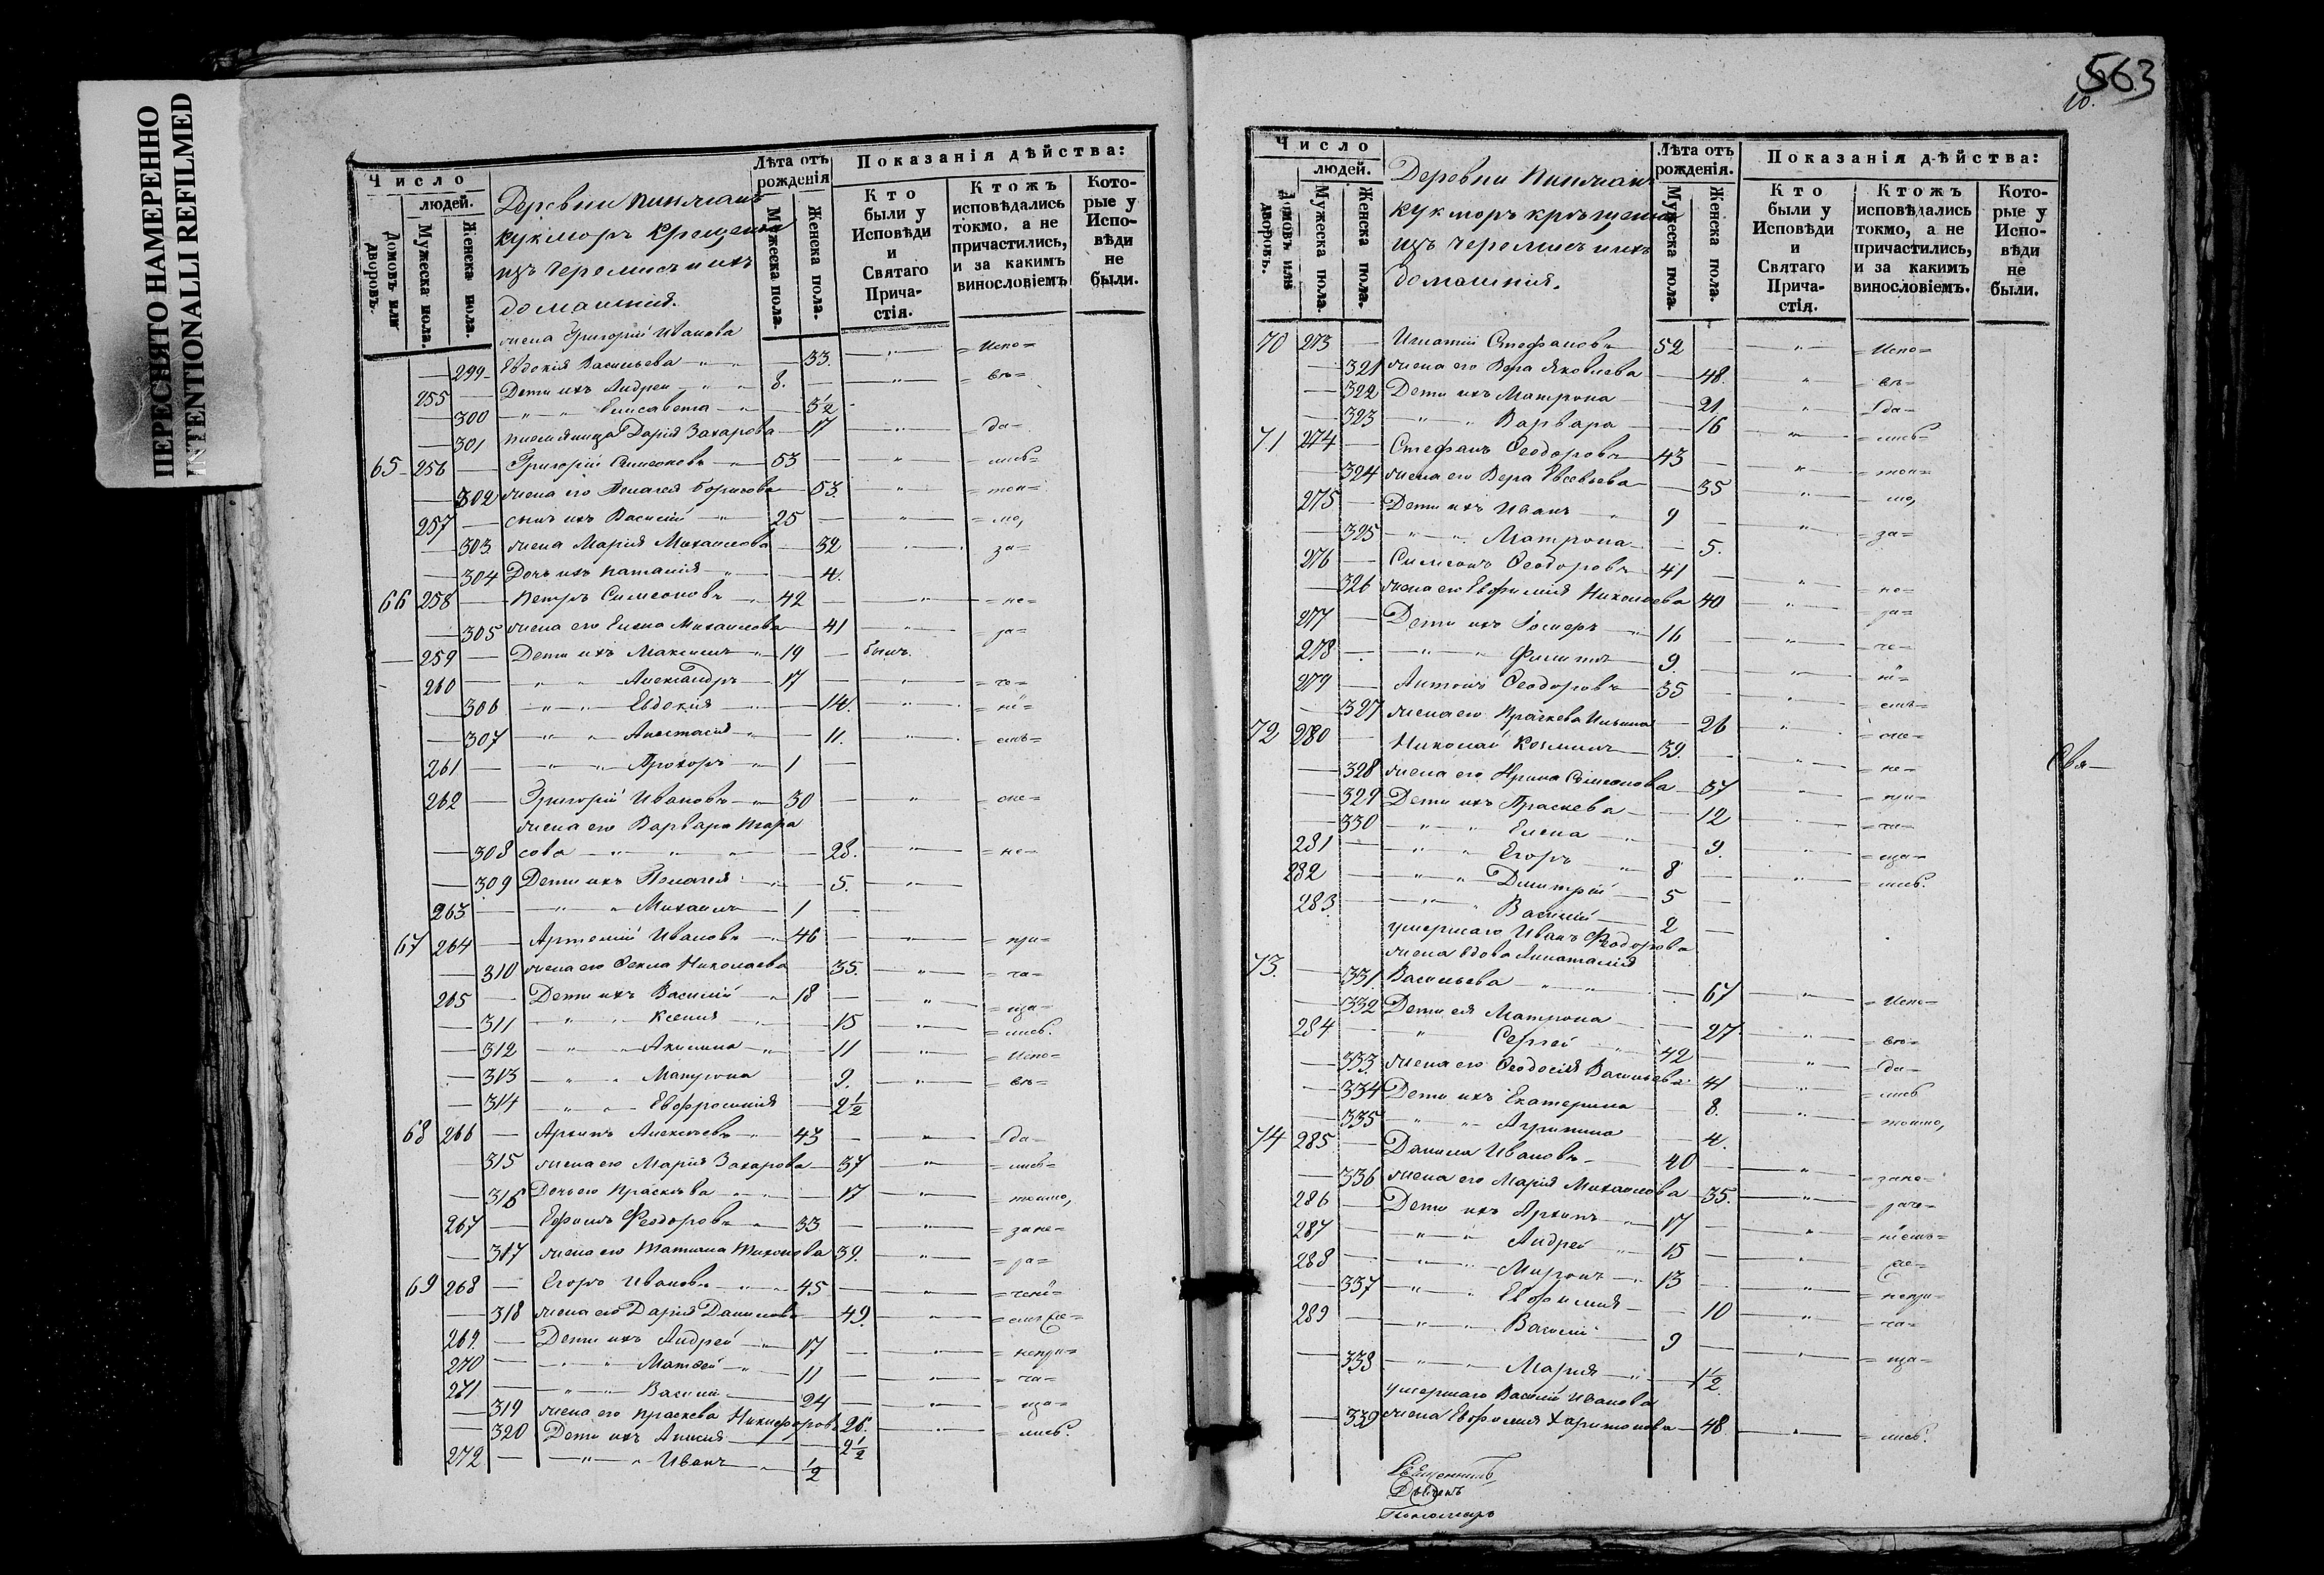 ПЕРЕСНЯТО НАМЕРЕННО
INTENTIONALLI REFILMED
Число
людей.
Домовъ или дворовъ.
Мужеска пола.
Женска пола.
Деревни
Кукморъ Крещены
изъ черемисъ и ихъ
домашнія.
Лѣта отъ рожденія
Мужеска пола.
Женска пола.
Показанія дѣйства:
Кто были у Исповѣди и Святаго Причастія.
Ктожъ исповѣдались токмо, а не причастились, и за какимъ винословіемъ
Которые у Исповѣди не были.
жена Григорій Иванова
299 Евдокія Васильева 33. Испо=
255 Дети ихъ Андрей 8. вѣ=
300 Елисавета 3½
301 племянница Дарія Захарова 17 да=
65 256 Григорій Симеоновъ 53 лись=
302 жена его Пелагея Борисова 53. тол=
257 сынъ ихъ Василій 25 =ко,
303 жена Марія Михаилова 32 за=
304 Дочь ихъ Наталія 4.
66 258 Петръ Симеоновъ 42 =не=
305 жена его Елена Михаилова 41 =ра=
259 Дети ихъ Максимъ 19 былъ.
260 Александръ 17 =че=
306 Евдокія 14. =ні=
307 Анастасія 11. =емъ=
261 Прохоръ 1
262 Григорій Ивановъ 30 =оне=
жена его Варвара
308 сова 28. =не=
309 Дети ихъ Пелагея 5.
263 Михаилъ 1
67 264 Артемій Ивановъ 46 =при=
310 жена его Фекла Николаева 35. =ча=
265 Дети ихъ Василій 18 =ща=
311 Ксенія 15 =лись.
312 Акилина 11 =Испо=
313 Матрона 9. =вѣ=
314 Евфросинія 2½
68 266 Архипъ Алексѣевъ 43 =да=
315 жена его Марія Захарова 37 =лись=
316 Дочь его Праскева 17 =толко,
267 Ефимъ Феодоровъ 33 =зане=
317 жена его Татіана Тихонова 39. =ра=
69 268 Егоръ Ивановъ 45 =чені=
318 жена его Дарія Данилова 49.
269. Дети ихъ Андрей 17 =непри=
270 Матѳей 11 =ча=
271 Василій 24 =ща=
319 жена его Праскева Никифорова 26. =лись.
320 Дети ихъ Анисія 2½
272 Иванъ ½
563
10.
Число
людей.
Домовъ или дворовъ.
Мужеска пола.
Женска пола.
Деревни
Кукморъ крещены
изъ черемисъ и ихъ
домашнія.
Лѣта отъ рожденія.
Мужеска пола.
Женска пола.
Показанія дѣйства:
Кто были у Исповѣди и Святаго Причастія.
Ктожъ исповѣдались токмо, а не причастились, и за какимъ винословіемъ.
Которые у Исповѣди не были.
70 273 Игнатій Стефановъ 52 =Испо=
321 жена его Вера Яковлева 48. =вѣ=
322 Дети ихъ Матрона 21 =да=
323 Варвара 16 =лись=
71 274 Стефанъ Ѳеодоровъ 43 =тол=
324 жена его Вера Евсевьева 35 =ко,
275 Дети ихъ Иванъ 9
325 Матрона 5. =за=
276 Симеонъ Ѳеодоровъ 41 =не=
326 жена его Евфимія Николаева 40 =ра=
277 Дети ихъ 16 =че=
278 Филиппъ 9 =ні=
279 Антонъ Ѳеодоровъ 35 =емъ=
327 жена его Праскева Ильина 26 =оне=
72 280 Николай Козминъ 39. =не=
328 жена его Ирина Симеонова 37 =при=
329 Дети ихъ Праскева 12 =ча=
330 Елена 9. =ща=
281 Егоръ 8 =лись.
282 Дмитрій 5
283. Василій 2
умершаго Иванъ Феодорова
жена вдова
73. 331 Васильева 67 =Испо=
332 Дети ея Матрона 27 =вѣ=
284 Сергей 42 =да=
333 жена его Ѳеодосія Васильева 41 =лись
334 Дети ихъ Екатерина 8. =толко,
335 Агрипина 4.
74 285 Данила Ивановъ 40 =зане=
336 жена его Марія Михаилова 35. =раче=
286 Дети ихъ Архипъ 17 =ніемъ=
287 Андрей 15
288 Миронъ 13 =непри=
337 Евфимія 10 =ча=
289 Василій 9 =ща=
338 Марія 1½
умершаго Василій Иванова
339 жена Евфимія Харитонова 48 =лись.
Свя—
Священникъ
Пономарь